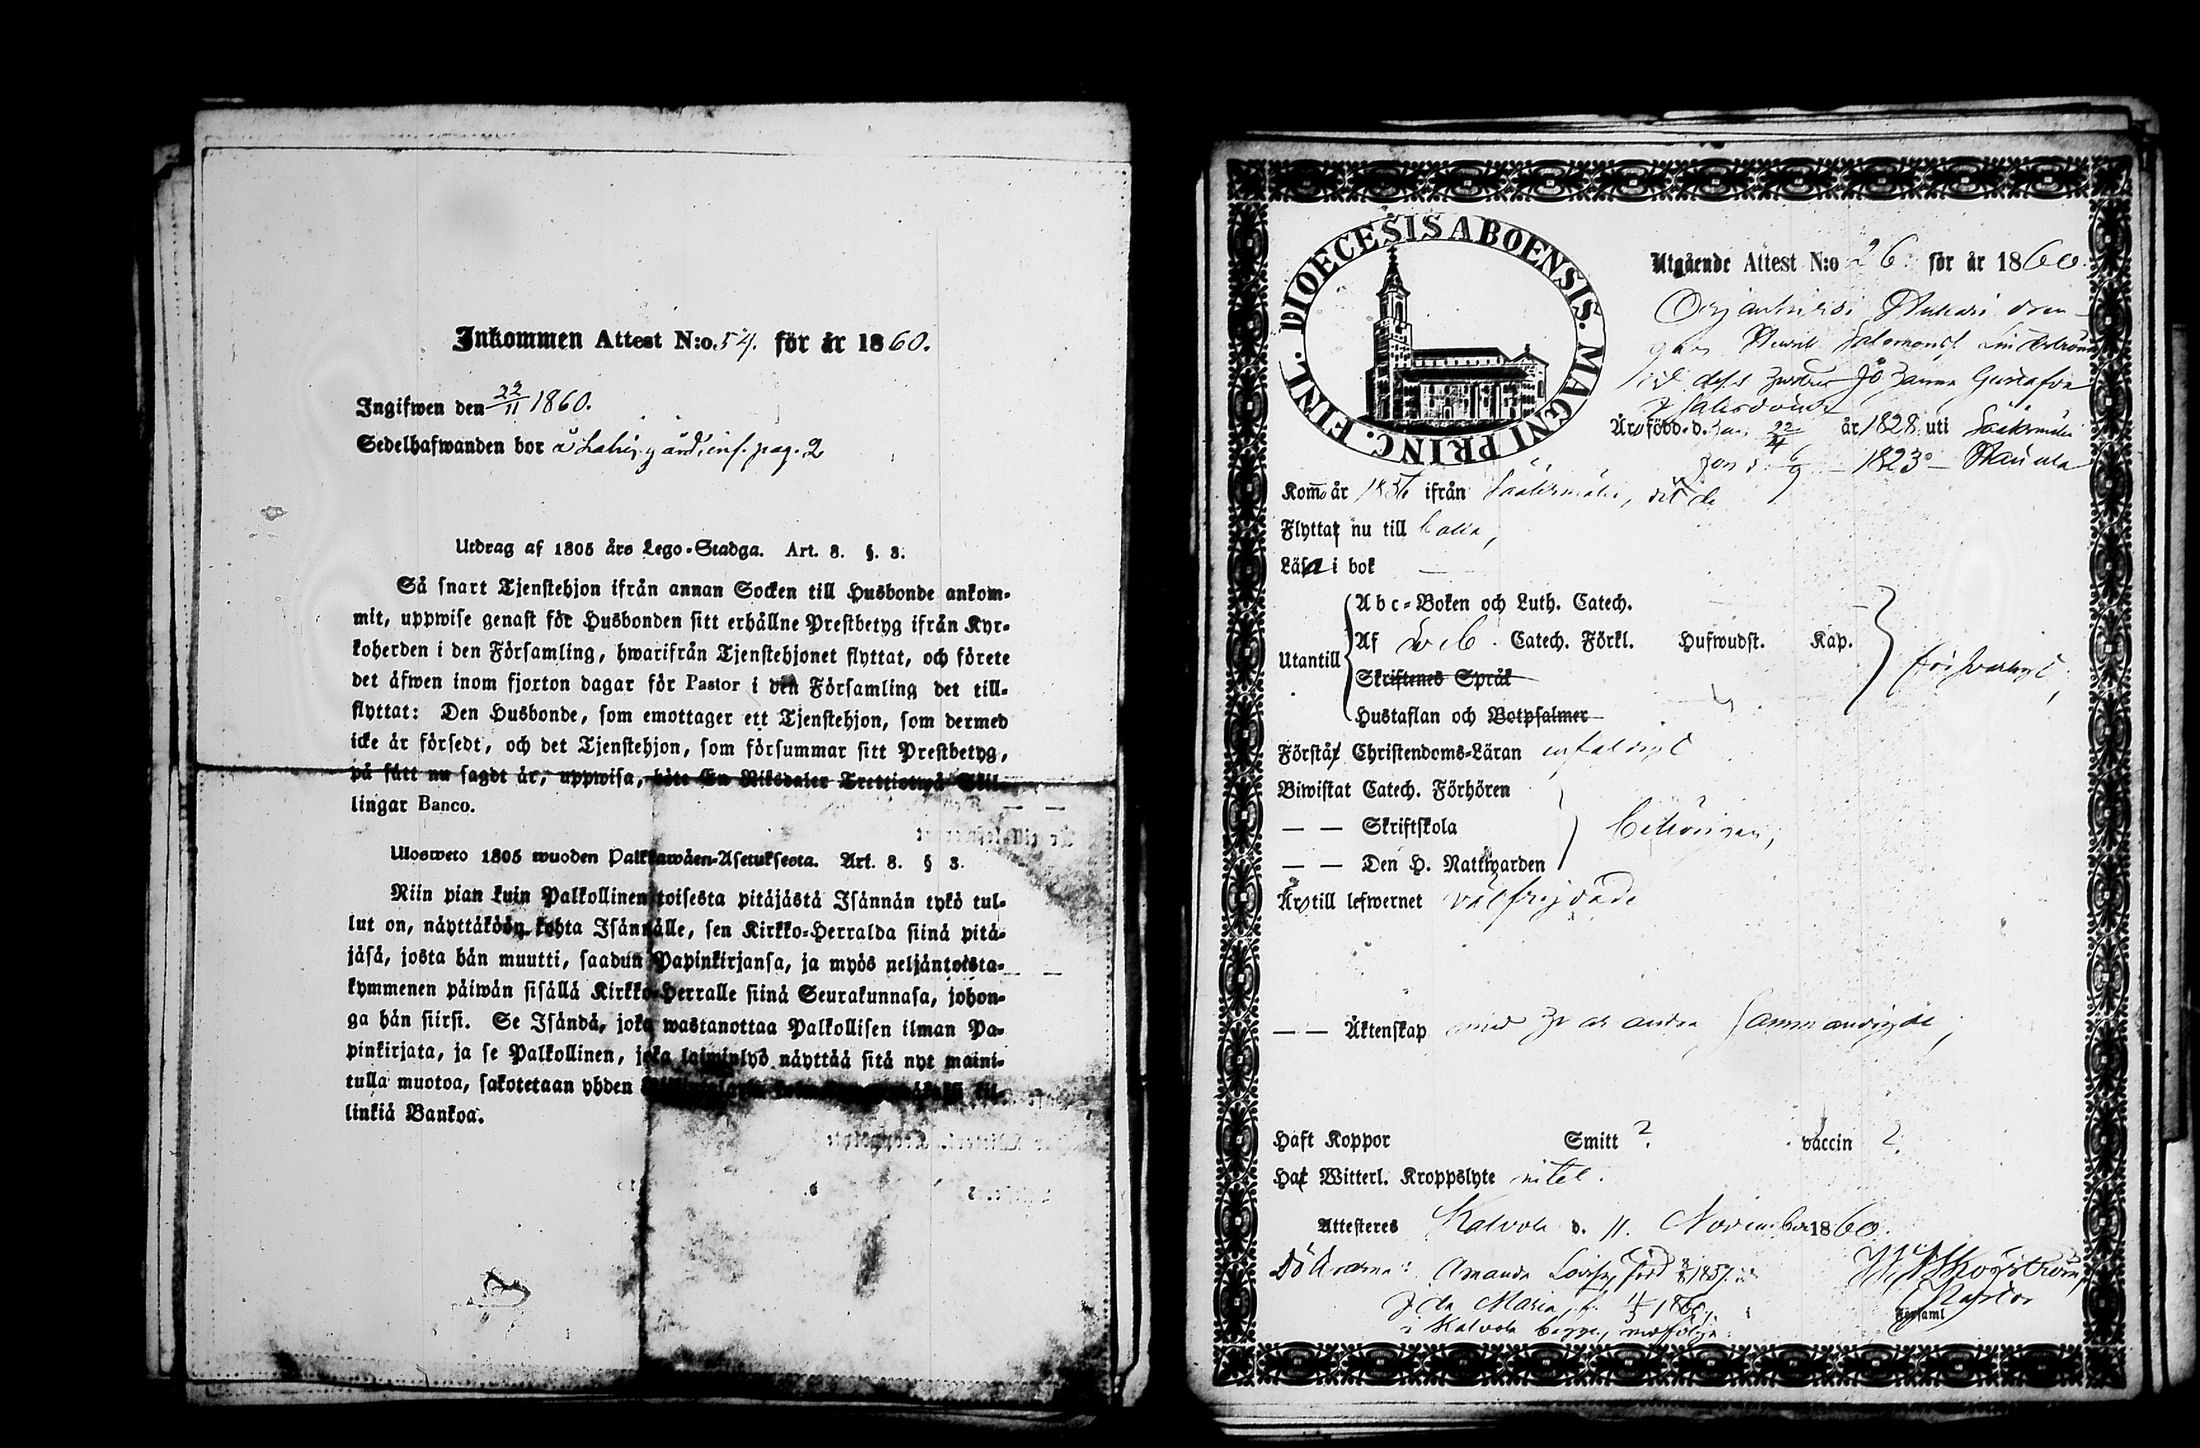 Inkommen Attest N:o 54. för år 1860.
Ingifwen den 22/11 1860.
Sedelhafwanden bor å pag. 2
Utdrag af 1805 års Lego-Stadga. Art. 8. §. 3.
Så snart Tjenstehjon ifrån annan Socken till Husbonde ankom-
mit, uppwise genast för Husbonden sitt erhållne Prestbetyg ifrån Kyr-
koherden i den Församling, hwarifrån Tjenstehjonet flyttat, och förete
det äfwen inom fjorton dagar för Pastor i den Församling det till-
flyttat: Den Husbonde, som emottager ett Tjenstehjon, som dermed
icke är försedt, och det Tjenstehjon, som försummar sitt Prestbetyg,
på sätt nu sagdt är, uppwisa, böte En Riksdaler Trettiotwå Skil-
lingar Banco.
Ulosweto 1805 wuoden Palkkawäen-Asetuksesta. Art. 8. § 3.
Niin pian kuin Palkollinen toisesta pitäjästä Isännän tykö tul-
lut on, näyttäköön kohta Isännälle, sen Kirkko-Herralda siinä pitä-
jäsä, josta hän muutti, saadun Papinkirjansa, ja myös neljäntoista-
kymmenen päiwän sisällä Kirkko-Herralle siinä Seurakunnasa, johon-
ga hän siirsi. Se Isändä, joka wastanottaa Palkollisen ilman Pa-
pinkirjata, ja se Palkollinen, joka laiminlyö näyttää sitä nyt maini-
tulla muotoa, sakotetaan yhden kil-
linkiä Bankoa.
DIOECESIS ABOENSIS. MAGNI PRINC. FINL.
Utgående Attest N:o 26. för år 1860.
dren-
Salomons Lindström
och dess hustru Johanna Gustafva
Äro född. d. han 22/4 år 1828 uti Sääksmäki
hon d. 6/9 — 1823 — Hauho
Kom år 1856 ifrån Sääksmäki,
Flyttar nu till
Läsa i bok —
Utantill
Abc-Boken och Luth. Catech.
Af Catech. Förkl. Hufwudst. Kap.
Skriftenes Språk
Hustaflan och Botpsalmer
försvarligt,
Förstår Christendoms-Läran enfaldigt
Biwistat Catech. Förhören
— — Skriftskola
— — Den H. Nattwarden
behörigen,
Äro till lefwernet välfrejdade
— — Äktenskap med hvarandra sammanvigde,
Haft Koppor Smitt ? vaccin ?
Hat Witterl. Kroppslyte intet.
Attesteres Kalvola d. 11. November 1860.
Döttrarne: Amanda Lovisa, född 1857
Ida Maria, f. 11/3 1860,
i Kalvola begge, medfölja.
Pastor
Församl